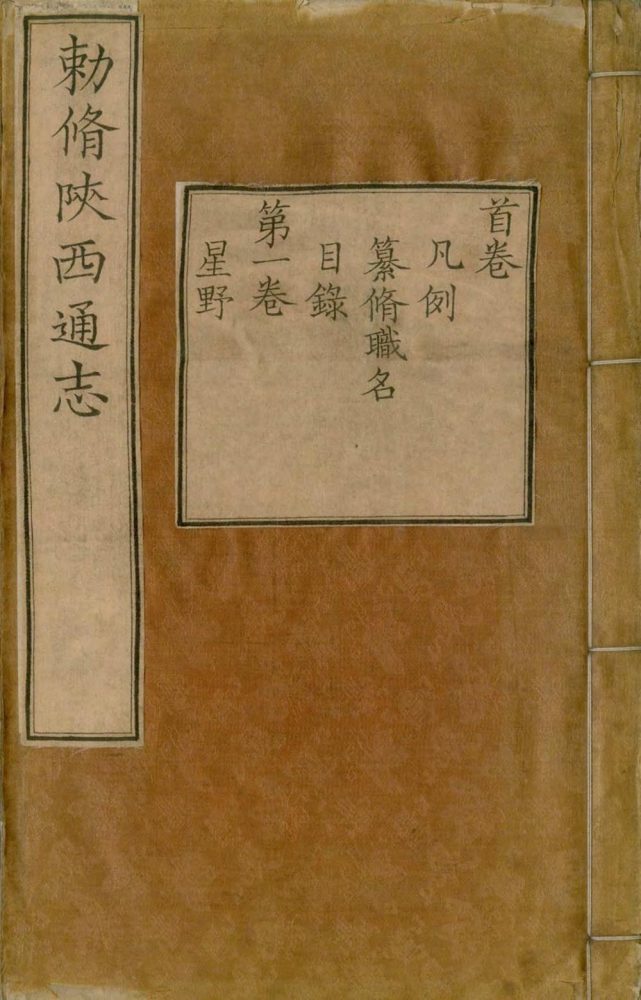 勅脩陝西通志
首卷
凡例
纂脩職名
目錄
第一卷
星野